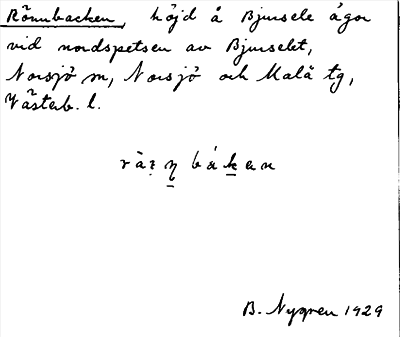 Rönnbacken, höjd å Bjursele ägor
vid nordspetsen av Bjurselet,
Norsjö sn, Norsjö och Malå tg,
Västerb. l.
B. Nygren 1929